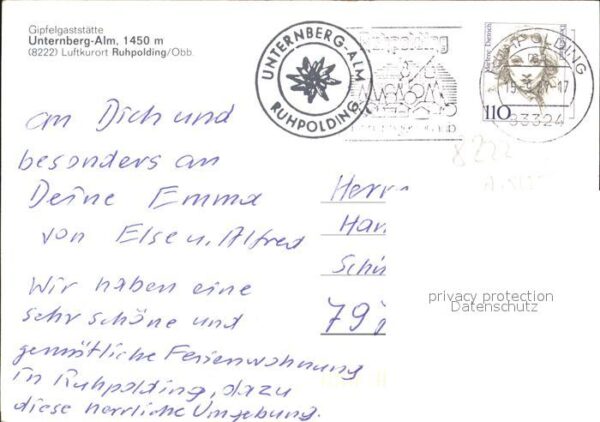 Gipfelgaststätte
Unternberg-Alm, 1450 m
(8222) Luftkurort Ruhpolding/Obb.
UNTERNBERG-ALM
RUHPOLDING
Ruhpolding
110
83324
8222
an Dich und
besonders an
Deine Emma
von Else u. Alfred
Wir haben eine
sehr schöne und
gemütliche Ferienwohnung
in Ruhpolding, dazu
diese herrliche Umgebung.
Herr
Har
Schü
79
privacy protection
Datenschutz